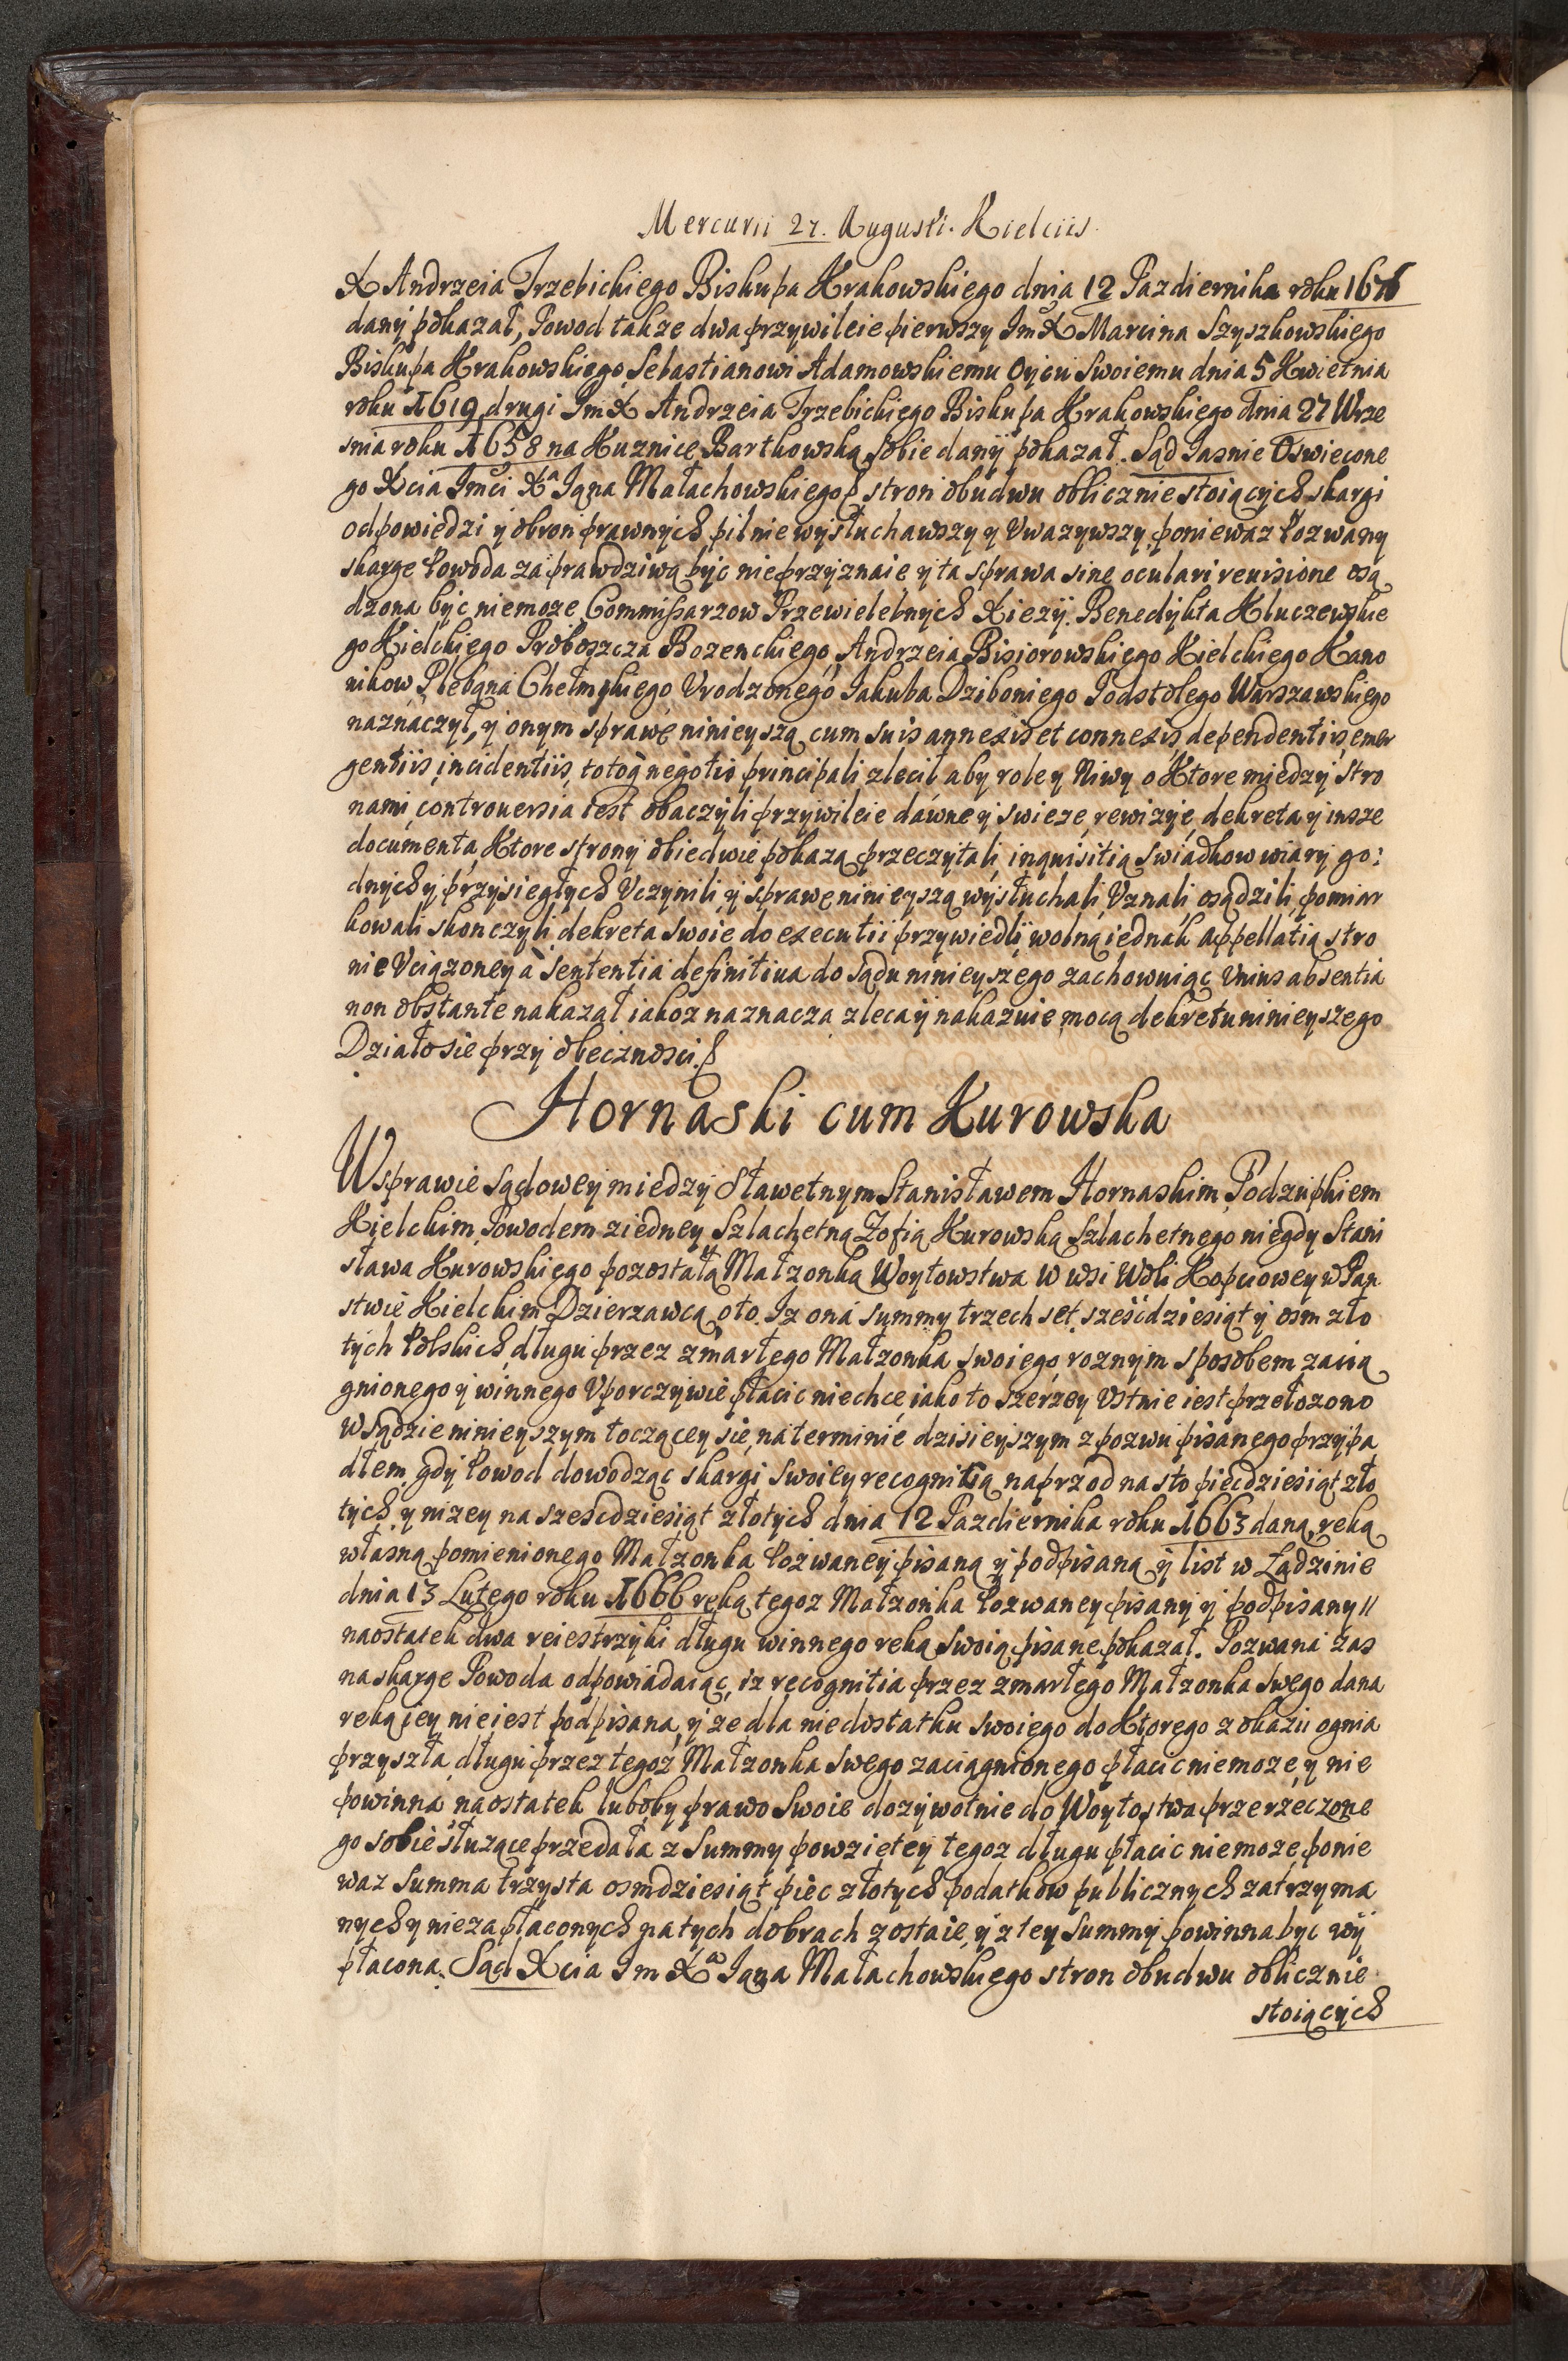 Mercurii 27. Augusti. Kielciis.
X Andrzeia Trzebickiego Biskupa Krakowskiego dnia 12 Pazdiernika roku 1676
dany pokazał, Powod takze dwa przywileie pierwszy Im X Marcina Szyszkowskiego
Biskupa Krakowskiego Sebastianowi Adamowskiemu Oycu Swoiemu dnia 5 Kwietnia
roku 1619 drugi Im X Andrzeia Trzebickiego Biskupa Krakowskiego dnia 27 Wrze
snia roku 1658 na Kuznicę Bartkowską sobie dany pokazał. Sąd Iasnie Oswiecone
go Xcia Imci Xa Iana Małachowskiego stron obudwu oblicznie stoiących skargi
odpowiedzi y obron prawnych pilnie wysłuchawszy y Uwazywszy poniewaz Pozwany
skargę Powoda za prawdziwą byc nieprzyznaie y ta sprawa sine oculari reuisione osą
dzona byc niemoze Commissarzow Przewielebnych Xiezy. Benedykta Kluczewskie
go Kielckiego Proboszcza Bozenckiego, Andrzeia Bisiorowskiego Kielckiego Kano
nikow, Plebana Chełmskiego Vrodzonego Iakuba Dziboniego Podstolego Warszawskiego
naznaczył, y onym sprawę ninieyszą cum suis annexis et connexis dependentiis, emer
gentiis, incidentiis, totoq negotio principali zlecił aby role y Niwy o Ktore miedzy Stro
nami controuersia iest obaczyli przywileie dawne y swieze, rewizye, dekreta y insze
documenta Ktore strony obiedwie pokazą przeczytali, inquisitią swiadkow wiary go:
dnych y przysięgłych Vczynili y sprawę ninieyszą wysłuchali, Vznali, osądzili, pomiar
kowali skonczyli dekreta Swoie do executii przywiedli, wolną iednak appellatią stro
nie Vciązoney à Sententia definitiua do sądu ninieyszego zachowuiąc Vnius absentia
non obstante nakazał iakoz naznacza zleca y nakazuie mocą dekretu ninieyszego
Działo sie przy obecznosci.
Hornaski cum Kurowska
W sprawie sądowey miedzy Sławetnym Stanisławem Hornaskim Podzupkiem
Kielckim Powodem ziedney Szlachetną Zofią Kurowską Szlachetnego niegdy Stani
sława Kurowskiego pozostałą Małzonką Woytowstwa w wsi Woli Kopciowey w Pan
stwie Kielckim Dzierzawcą, oto. Iz ona summy trzech set sześcdziesiąt y osm zło
tych Polskich długu przez zmarłego Małzonka swoiego roznym sposobem zacią
gnionego y winnego Vporczywie płacic niechce, iako to szerzey Vstnie iest przełozono
w sądzie ninieyszym toczącey się, na terminie dzisieyszym z pozwu pisanego przypa
dłem, gdy Powod dowodząc skargi Swoiey recognitią naprzod na sto piecdziesiąt zło
tych, y nizey na szescdziesiąt złotych dnia 12 Pazdiernika roku 1663 daną, ręką
własną pomienionego Małzonka Pozwaney pisaną y podpisaną y list w Lądzinie
dnia 13 Lutego roku 1666 ręką tegoz Małzonka Pozwaney pisany y podpisany //
naostatek dwa reiestrzyki długu winnego reką Swoią pisane pokazał. Pozwana zas
na skargę Powoda odpowiadaiąc, iz recognitia przez zmarłego Małzonka Swego dana
reką iey nie iest podpisana, y ze dla niedostatku swoiego do Ktorego z okazii ognia
przyszła, długu przez tegoz Małzonka Swego zaciągnionego płacic niemoze, y nie
powinna naostatek luboby prawo Swoie dozywotnie do Woytostwa przerzeczone
go sobie słuzące przedała z Summy powziętey tegoz długu płacic niemoze, ponie
waz Summa trzysta osmdziesiąt pięc złotych podatkow publicznych zatrzyma
nych y niezapłaconych na tych dobrach zostaie, y z tey Summy powinna byc wy
płacona. Sąd Xcia Im Xa Iana Małachowskiego stron obudwu oblicznie
stoiących